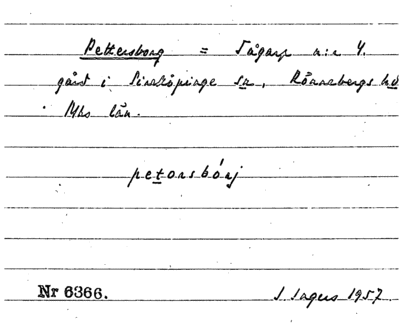 Pettersborg = Tågarp n:r 4.
gård i Simlöpinge sn, Rönnebergs hd
Mhs län.
petərsbórj
Nr 6366.
1957.